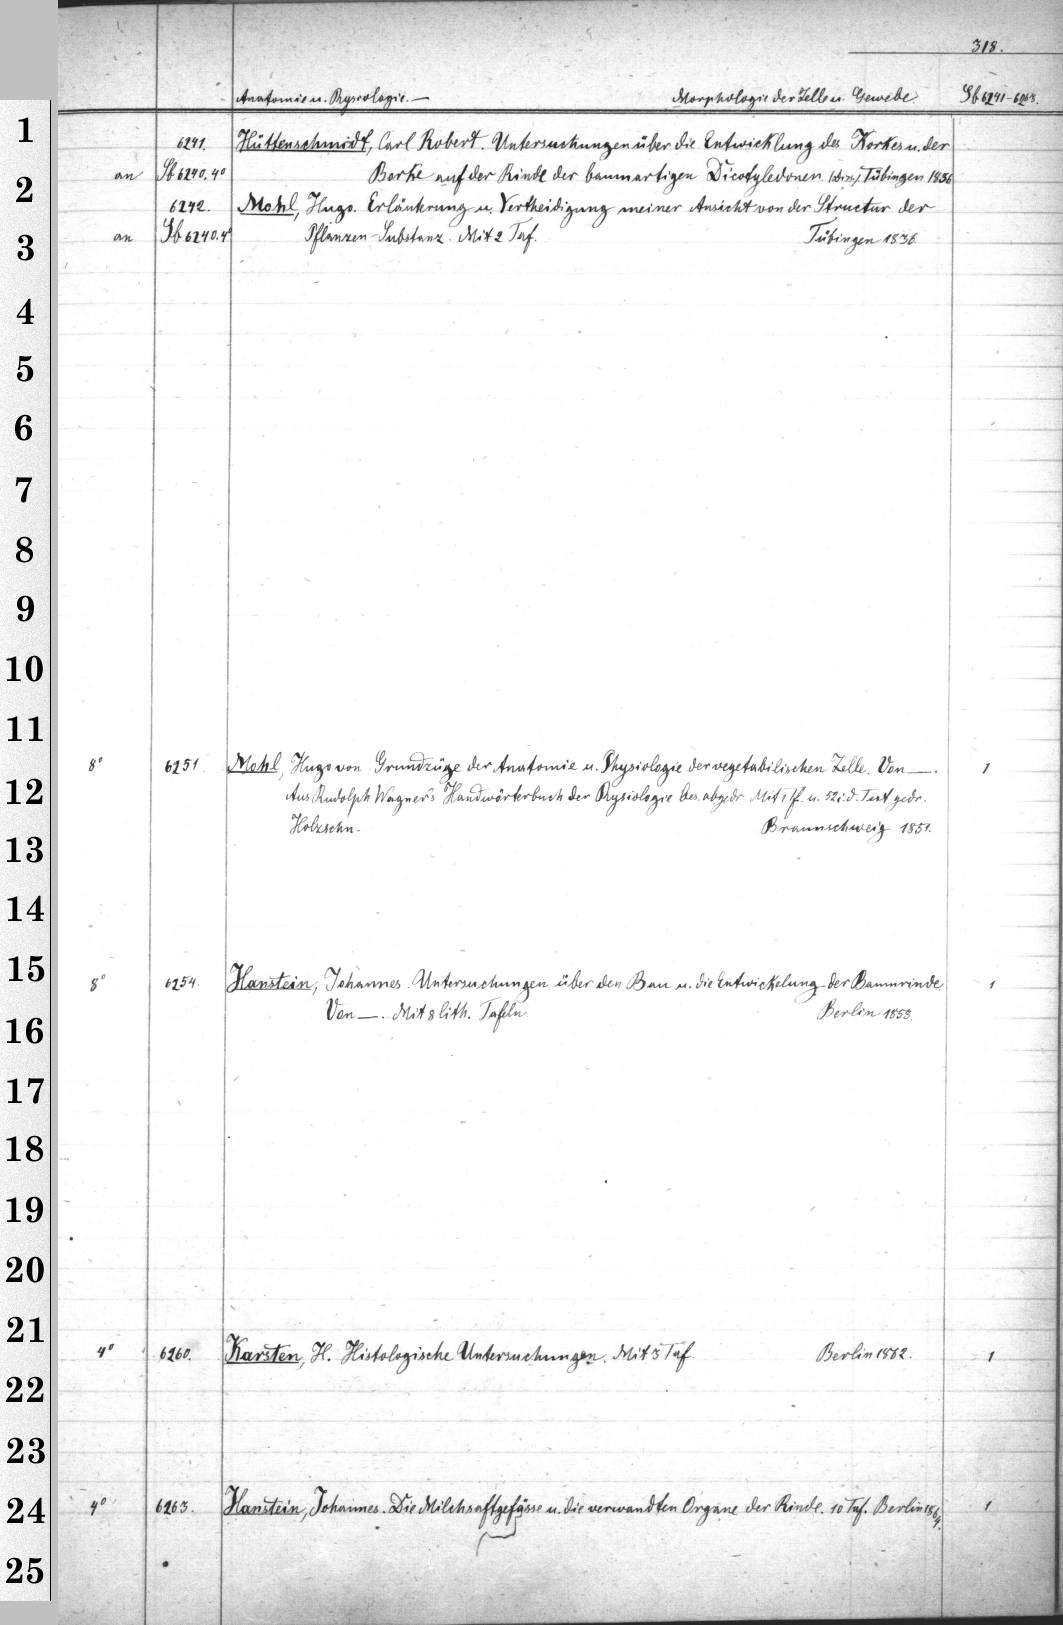 318.
Anatomie u. Physiologie. — Morphologie der Zelle u. Gewebe. Sb 6241-6263.
1
6241. Hüttenschmidt, Carl Robert. Untersuchungen über die Entwicklung des Korkes u. der
an Sb 6240.4° Borke auf der Rinde der baumartigen Dicotyledonen. (Diss.) Tübingen 1836
2
6242. Mohl, Hugo. Erläuterung u. Vertheidigung meiner Ansicht von der Structur der
an Sb 6240.4° Pflanzen-Substanz. Mit 2 Taf. Tübingen 1836.
3
4
5
6
7
8
9
10
11
8° 6251. Mohl, Hugo von Grundzüge der Anatomie u. Physiologie der vegetabilischen Zelle. Von —. 1
12
Aus Rudolph Wagner's Handwörterbuch der Physiologie bes. abgedr. Mit 1 Tf. u. 52 i. d. Text gedr.
Holzschn. Braunschweig 1851.
13
14
15
8° 6254. Hanstein, Johannes. Untersuchungen über den Bau u. die Entwickelung der Baumrinde 1
Von —. Mit 8 lith. Tafeln. Berlin 1853.
16
17
18
19
20
21
4° 6260. Karsten, H. Histologische Untersuchungen. Mit 3 Taf. Berlin 1862. 1
22
23
24
4° 6263. Hanstein, Johannes. Die Milchsaftgefässe u. die verwandten Organe der Rinde. 10 Taf. Berlin 1864. 1
25